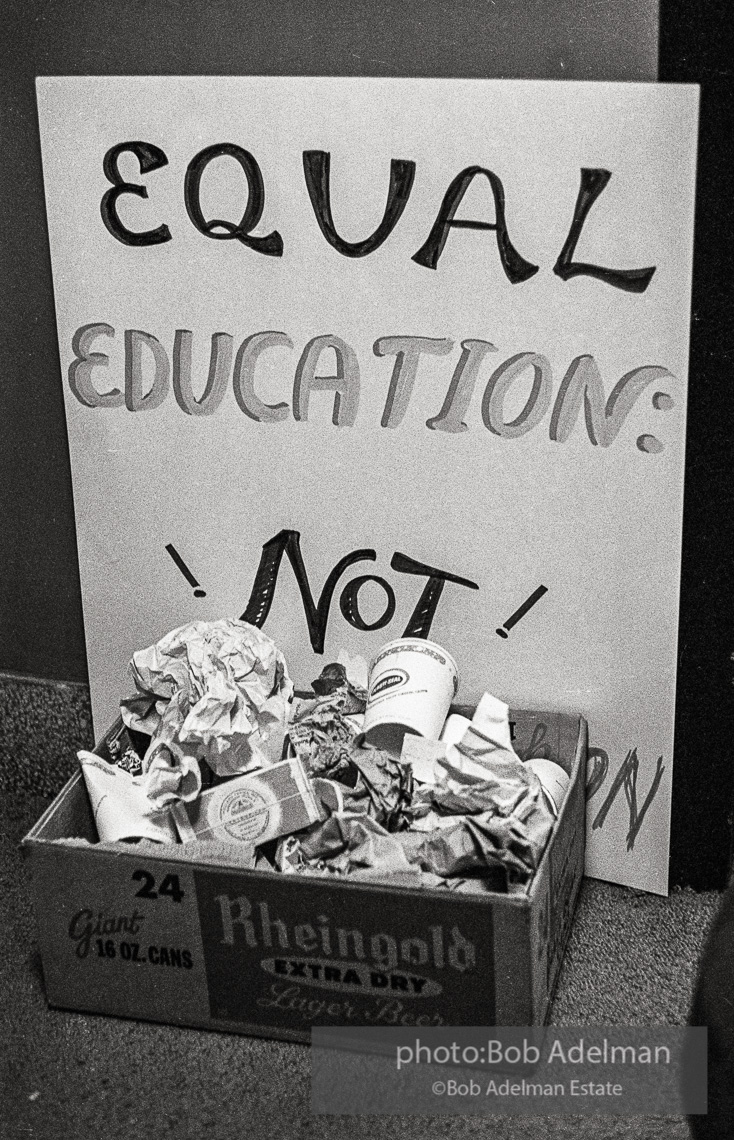 EQUAL
EDUCATION:
! NOT !
24
Giant
16 OZ. CANS
Rheingold
EXTRA DRY
Lager Beer
photo:Bob Adelman
©Bob Adelman Estate